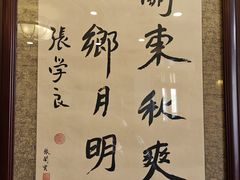 關東秋爽
鄉月明
張学良